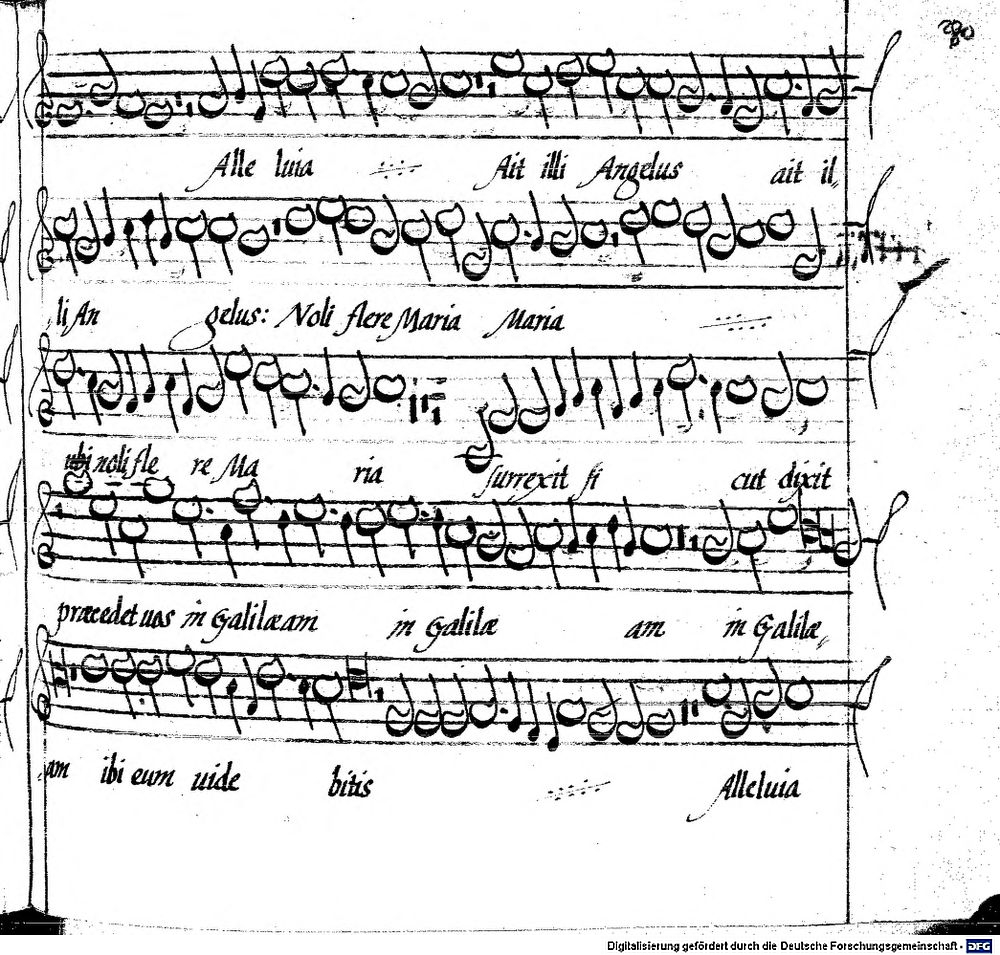 280
Alle luia Ait illi Angelus ait il,,
li An gelus: Noli flere Maria Maria
noli fle re Ma ria surrexit si cut dixit
præcedet uos in Galilæam in Galilæ am in Galilæ,,
am ibi eum uide bitis Alleluia
Digitalisierung gefördert durch die Deutsche Forschungsgemeinschaft - DFG